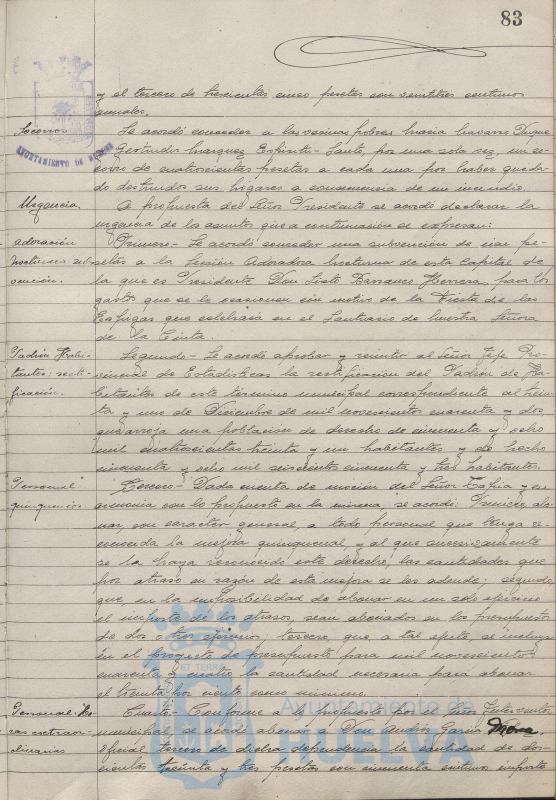 83
y el tercero de trescientas cinco pesetas con veintitres centimos
anuales.
Socorros
Se acordó conceder a las vecinas pobres María Navarro Duque
y Gertrudis Marquez Espíritu-Santo, por una sola vez, un so-
corro de cuatrocientas pesetas a cada una por haber queda-
do destruidos sus hogares a consecuencia de un incendio.
AYUNTAMIENTO DE HUELVA
Urgencia.
A propuesta del Señor Presidente se acordó declarar la
urgencia de los asuntos que a continuación se expresan:
Adoración
Nocturna sub-
vención.
Primero.- Se acordó conceder una subvención de cien pe-
setas a la Sección Adoradora Nocturna de esta Capital de
la que es Presidente Don Sixto Barranco Herrera, para los
gastos que se le ocasionen con motivo de la Fiesta de las
Espigas que celebrará en el Santuario de Nuestra Señora
de la Cinta.
Padrón Habi-
tantes: recti-
ficación.
Segundo.- Se acordó aprobar y remitir al Señor Jefe Pro-
vincial de Estadísticas la rectificación del Padrón de Ha-
bitantes de este término municipal correspondiente al trein-
ta y uno de Diciembre de mil novecientos cuarenta y dos,
que arroja una población de derecho de cincuenta y ocho
mil cuatrocientos treinta y un habitantes y de hecho
cincuenta y ocho mil seiscientos cincuenta y tres habitantes.
Personal:
quinquenios.
Tercero.- Dada cuenta de moción del Señor Tapia y en
armonía con lo propuesto en la misma se acordó: Primero, abo-
nar, con caracter general, a todo personal que tenga re-
conocida la mejora quinquenal, y al que sucesivamente
se la haya reconocido este derecho, las cantidades que
por atraso en razón de esta mejora se les adeude; segundo,
que, en la imposibilidad de abonar en un solo ejercicio
el importe de los atrasos, sean abonados en los presupuestos
de dos o tres ejercicios; tercero, que, a tal efecto, se incluya
en el proyecto de presupuesto para mil novecientos
cuarenta y cuatro la cantidad necesaria para abonar
el treinta por ciento como minimo.
Personal: Ho-
ras extraor-
dinarias
Cuarto.- Conforme a lo propuesto por el Señor Interventor
municipal se acordó abonar a Don Andrés García Mora,
oficial tercero de dicha dependencia la cantidad de dos-
cientas treinta y tres pesetas con cincuenta centimos importe
ET TERRÆ
Ayuntamiento de
HUELVA